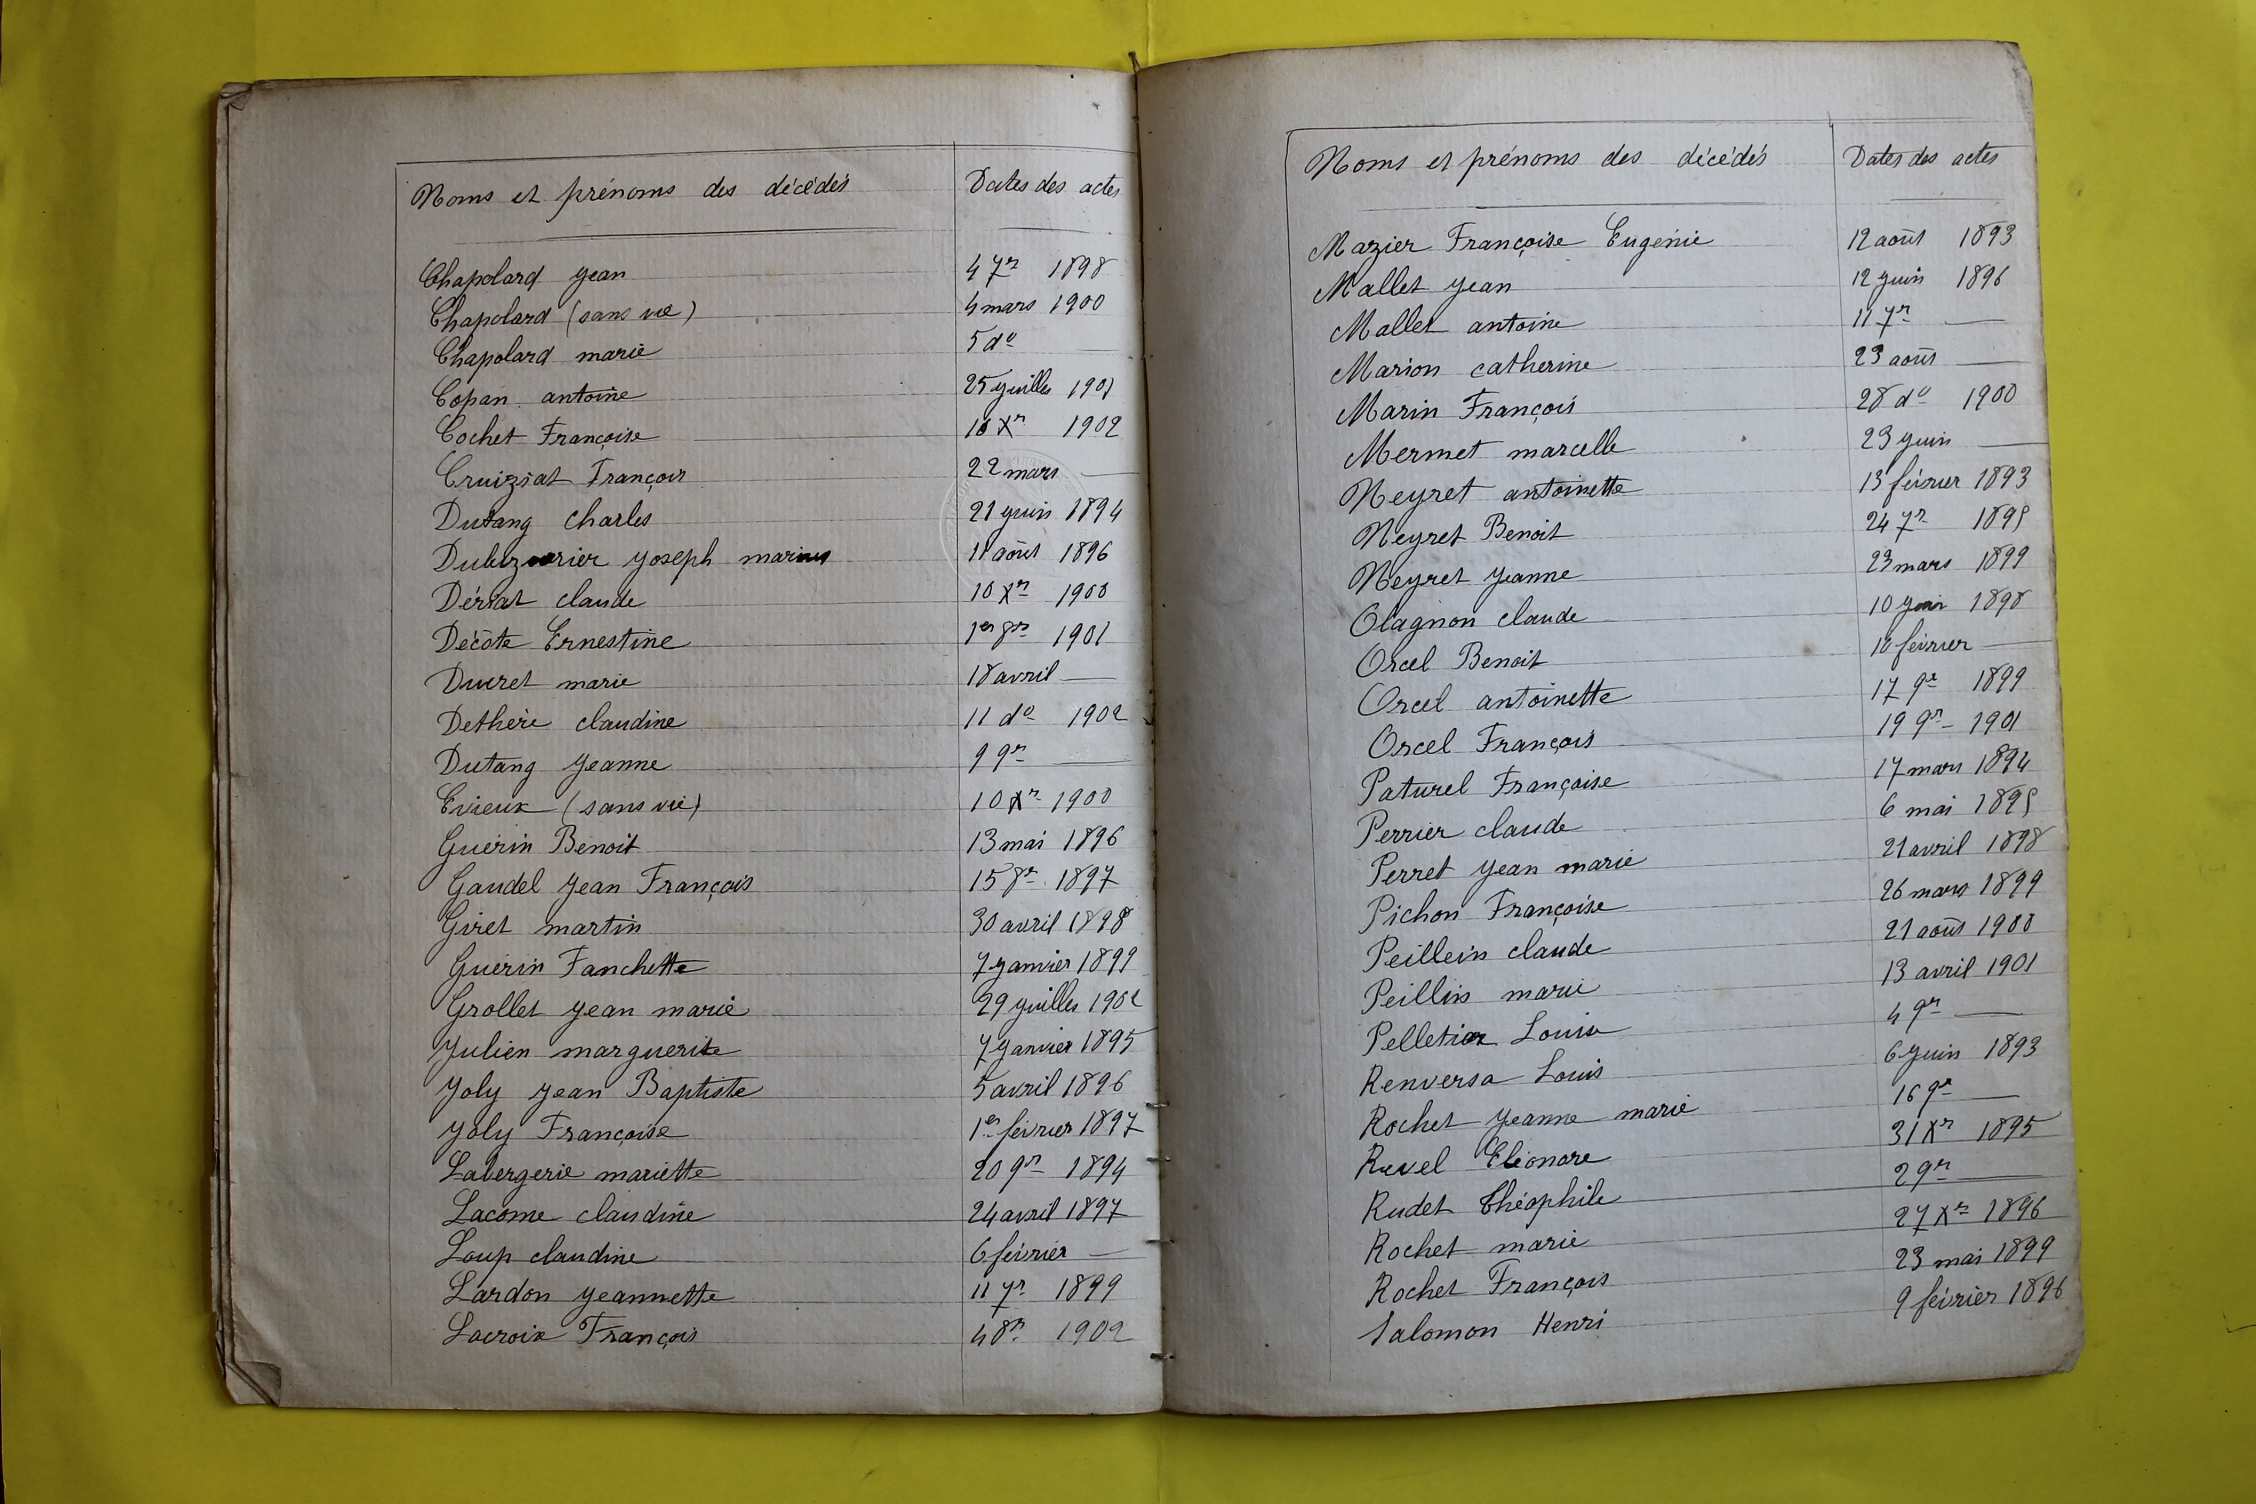 Noms et prénoms des décédés Dates des actes
Chapolard Jean 4 7re 1898
Chapolard (sans vie) 4 mars 1900
Chapolard marie 5 do —
Copan antoine 25 juillet 1901
Cochet Françoise 16 Xre 1902
Cruiziat François 22 mars —
Dutang Charles 21 juin 1894
Joseph marius 11 août 1896
Dériat claude 10 Xre 1900
Decôte Ernestine 1er 8re 1901
Duret marie 18 avril —
Dethère claudine 11 do 1902
Dutang Jeanne 9 9re —
Evieux (sans vie) 10 Xre 1900
Guérin Benoit 13 mai 1896
Gaudel Jean François 15 8re 1897
Giret martin 30 avril 1898
Guérin Fanchette 7 janvier 1899
Grollet Jean marie 29 juillet 1902
Julien marguerite 7 janvier 1895
Joly Jean Baptiste 5 avril 1896
Joly Françoise 1er février 1897
Labergerie mariette 20 9re 1894
Lacôme claudine 24 avril 1897
Loup claudine 6 février —
Lardon Jeannette 11 7re 1899
Lacroix François 4 8re 1902
Noms et prénoms des décédés Dates des actes
Mazier Françoise Eugénie 12 août 1893
Mallet Jean 12 juin 1896
Mallet antoine 11 7re —
Marion catherine 23 août —
Marin François 28 do 1900
Mermet marcelle 23 juin —
Neyret antoinette 13 février 1893
Neyret Benoit 24 7re 1895
Neyret Jeanne 23 mars 1899
Olagnon claude 10 juin 1898
Orcel Benoit 10 février —
Orcel antoinette 17 9re 1899
Orcel François 19 9re 1901
Paturel Françoise 17 mars 1894
Perrier claude 6 mai 1895
Perret Jean marie 21 avril 1898
Pichon Françoise 26 mars 1899
Peillein claude 21 août 1900
Peillin marie 13 avril 1901
Pelletier Louise 4 9re —
Renversa Louis 6 juin 1893
Rochet Jeanne marie 16 9re —
Ruvel Eléonore 31 Xre 1895
Rudet Théophile 2 9re —
Rochet marie 27 Xre 1896
Rochet François 23 mai 1899
Salomon Henri 9 février 1896